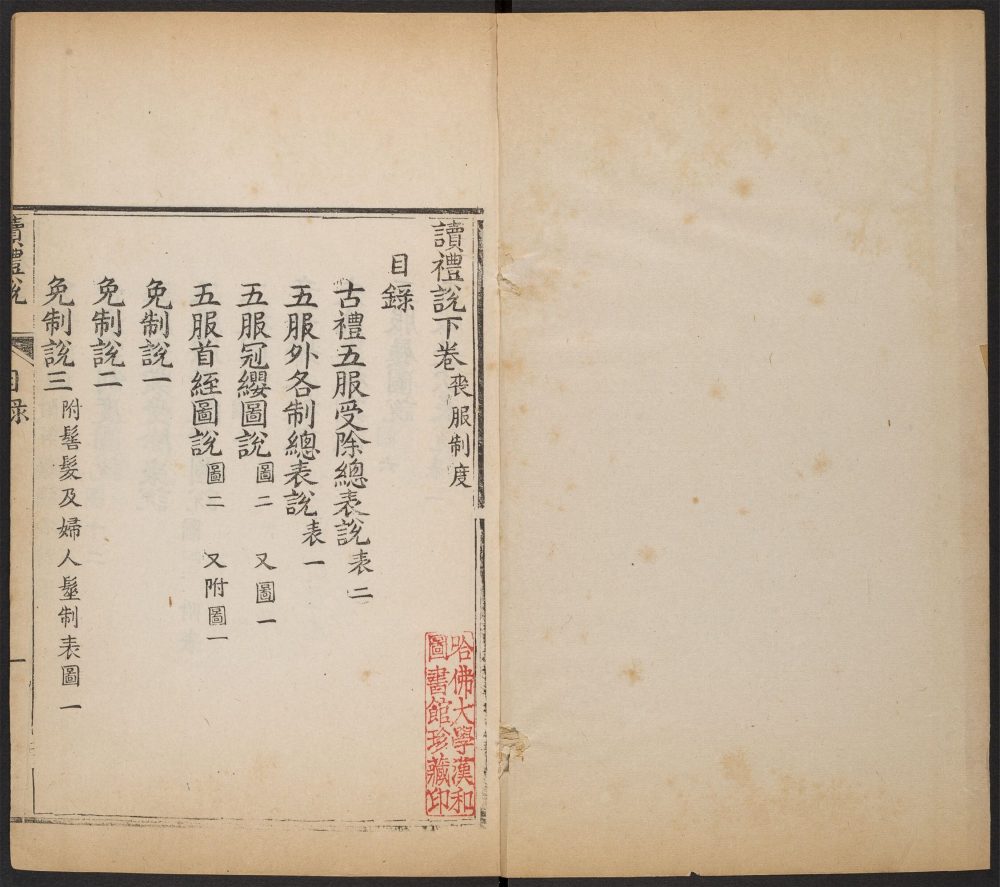 讀禮說下卷 喪服制度
目錄
古禮五服受除總表說 表二
五服外各制總表說 表一
五服冠纓圖說 圖二 又圖一
五服首絰圖說 圖二 又附圖一
免制說一
免制說二
免制說三 附髺髮及婦人髽制表圖一
讀禮說 目錄 一
哈佛大學漢和
圖書館珍藏印